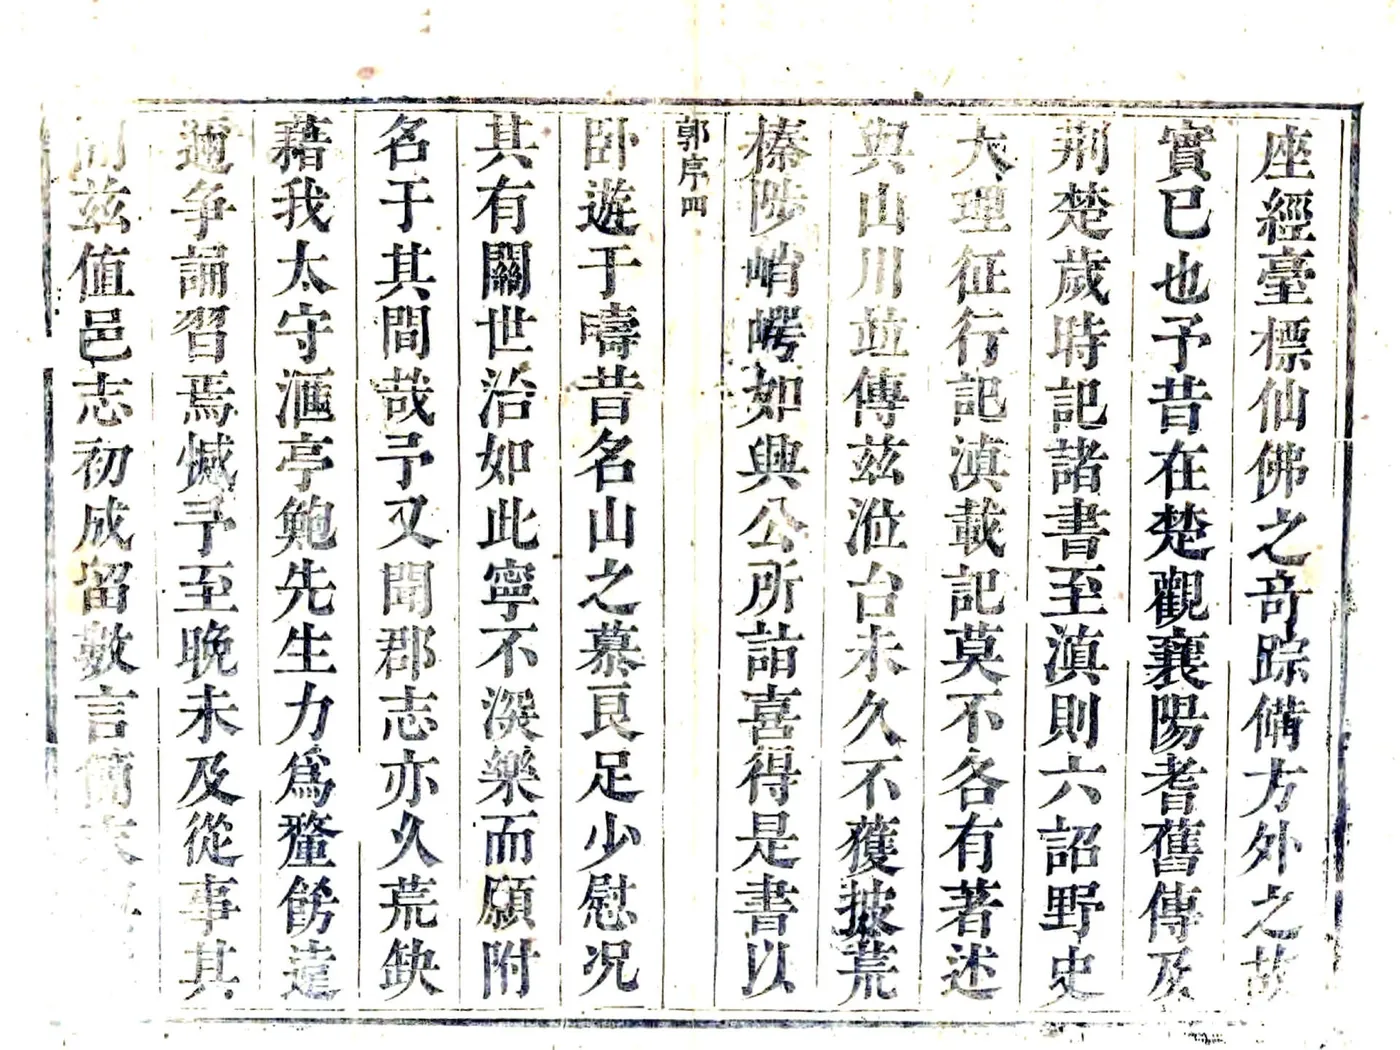 座經臺標仙佛之奇踪備方外之故
實已也予昔在楚觀襄陽耆舊傳及
荆楚歲時記諸書至滇則六詔野史
大理征行記滇載記莫不各有著述
與山川並傳茲涖台未久不獲披荒
榛陟峭崿如興公所詣喜得是書以
郭序四
卧遊于疇昔名山之慕良足少慰况
其有關世治如此寧不深樂而願附
名于其間哉予又聞郡志亦久荒缺
藉我太守滙亭鮑先生力爲釐飭遠
邇争誦習焉憾予至晚未及從事其
間茲值邑志初成留數言簡末